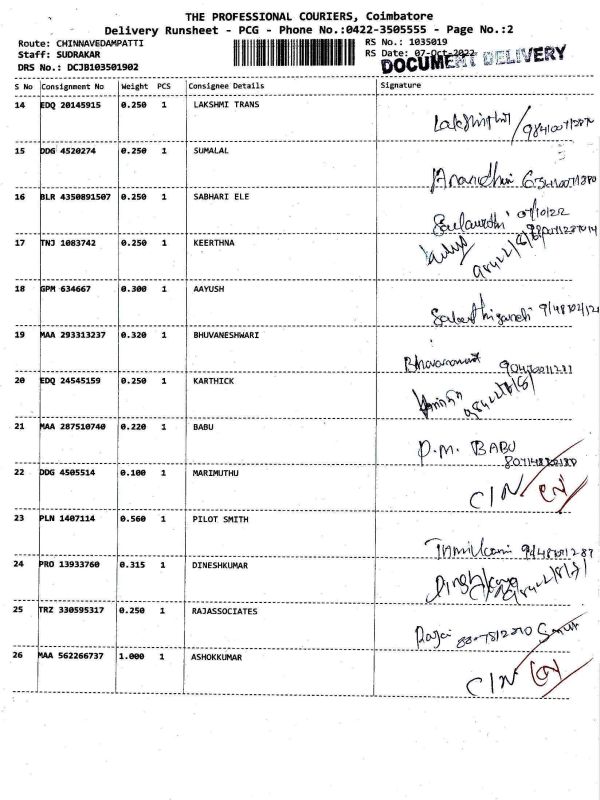 THE PROFESSIONAL COURIERS, Coimbatore
Delivery Runsheet - PCG - Phone No.:0422-3505555 - Page No.:2
Route: CHINNAVEDAMPATTI RS No.: 1035019
Staff: SUDRAKAR RS Date: 07-Oct-2022
DRS No.: DCJB103501902 DOCUMENT DELIVERY
S No Consignment No Weight PCS Consignee Details Signature
14 EDQ 20145915 0.250 1 LAKSHMI TRANS
15 DDG 4520274 0.250 1 SUMALAL
16 BLR 4350891507 0.250 1 SABHARI ELE
07/10/22
17 TNJ 1083742 0.250 1 KEERTHNA
18 GPM 634667 0.300 1 AAYUSH
19 MAA 293313237 0.320 1 BHUVANESHWARI
20 EDQ 24545159 0.250 1 KARTHICK
21 MAA 287510740 0.220 1 BABU
P.M. BABU
22 DDG 4505514 0.100 1 MARIMUTHU
C/N CN
23 PLN 1407114 0.560 1 PILOT SMITH
24 PRO 13933760 0.315 1 DINESHKUMAR
25 TRZ 330595317 0.250 1 RAJASSOCIATES
26 MAA 562266737 1.000 1 ASHOKKUMAR
C/N CN